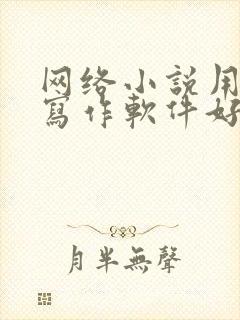 网络小説用
寫作軟件好
月半無聲